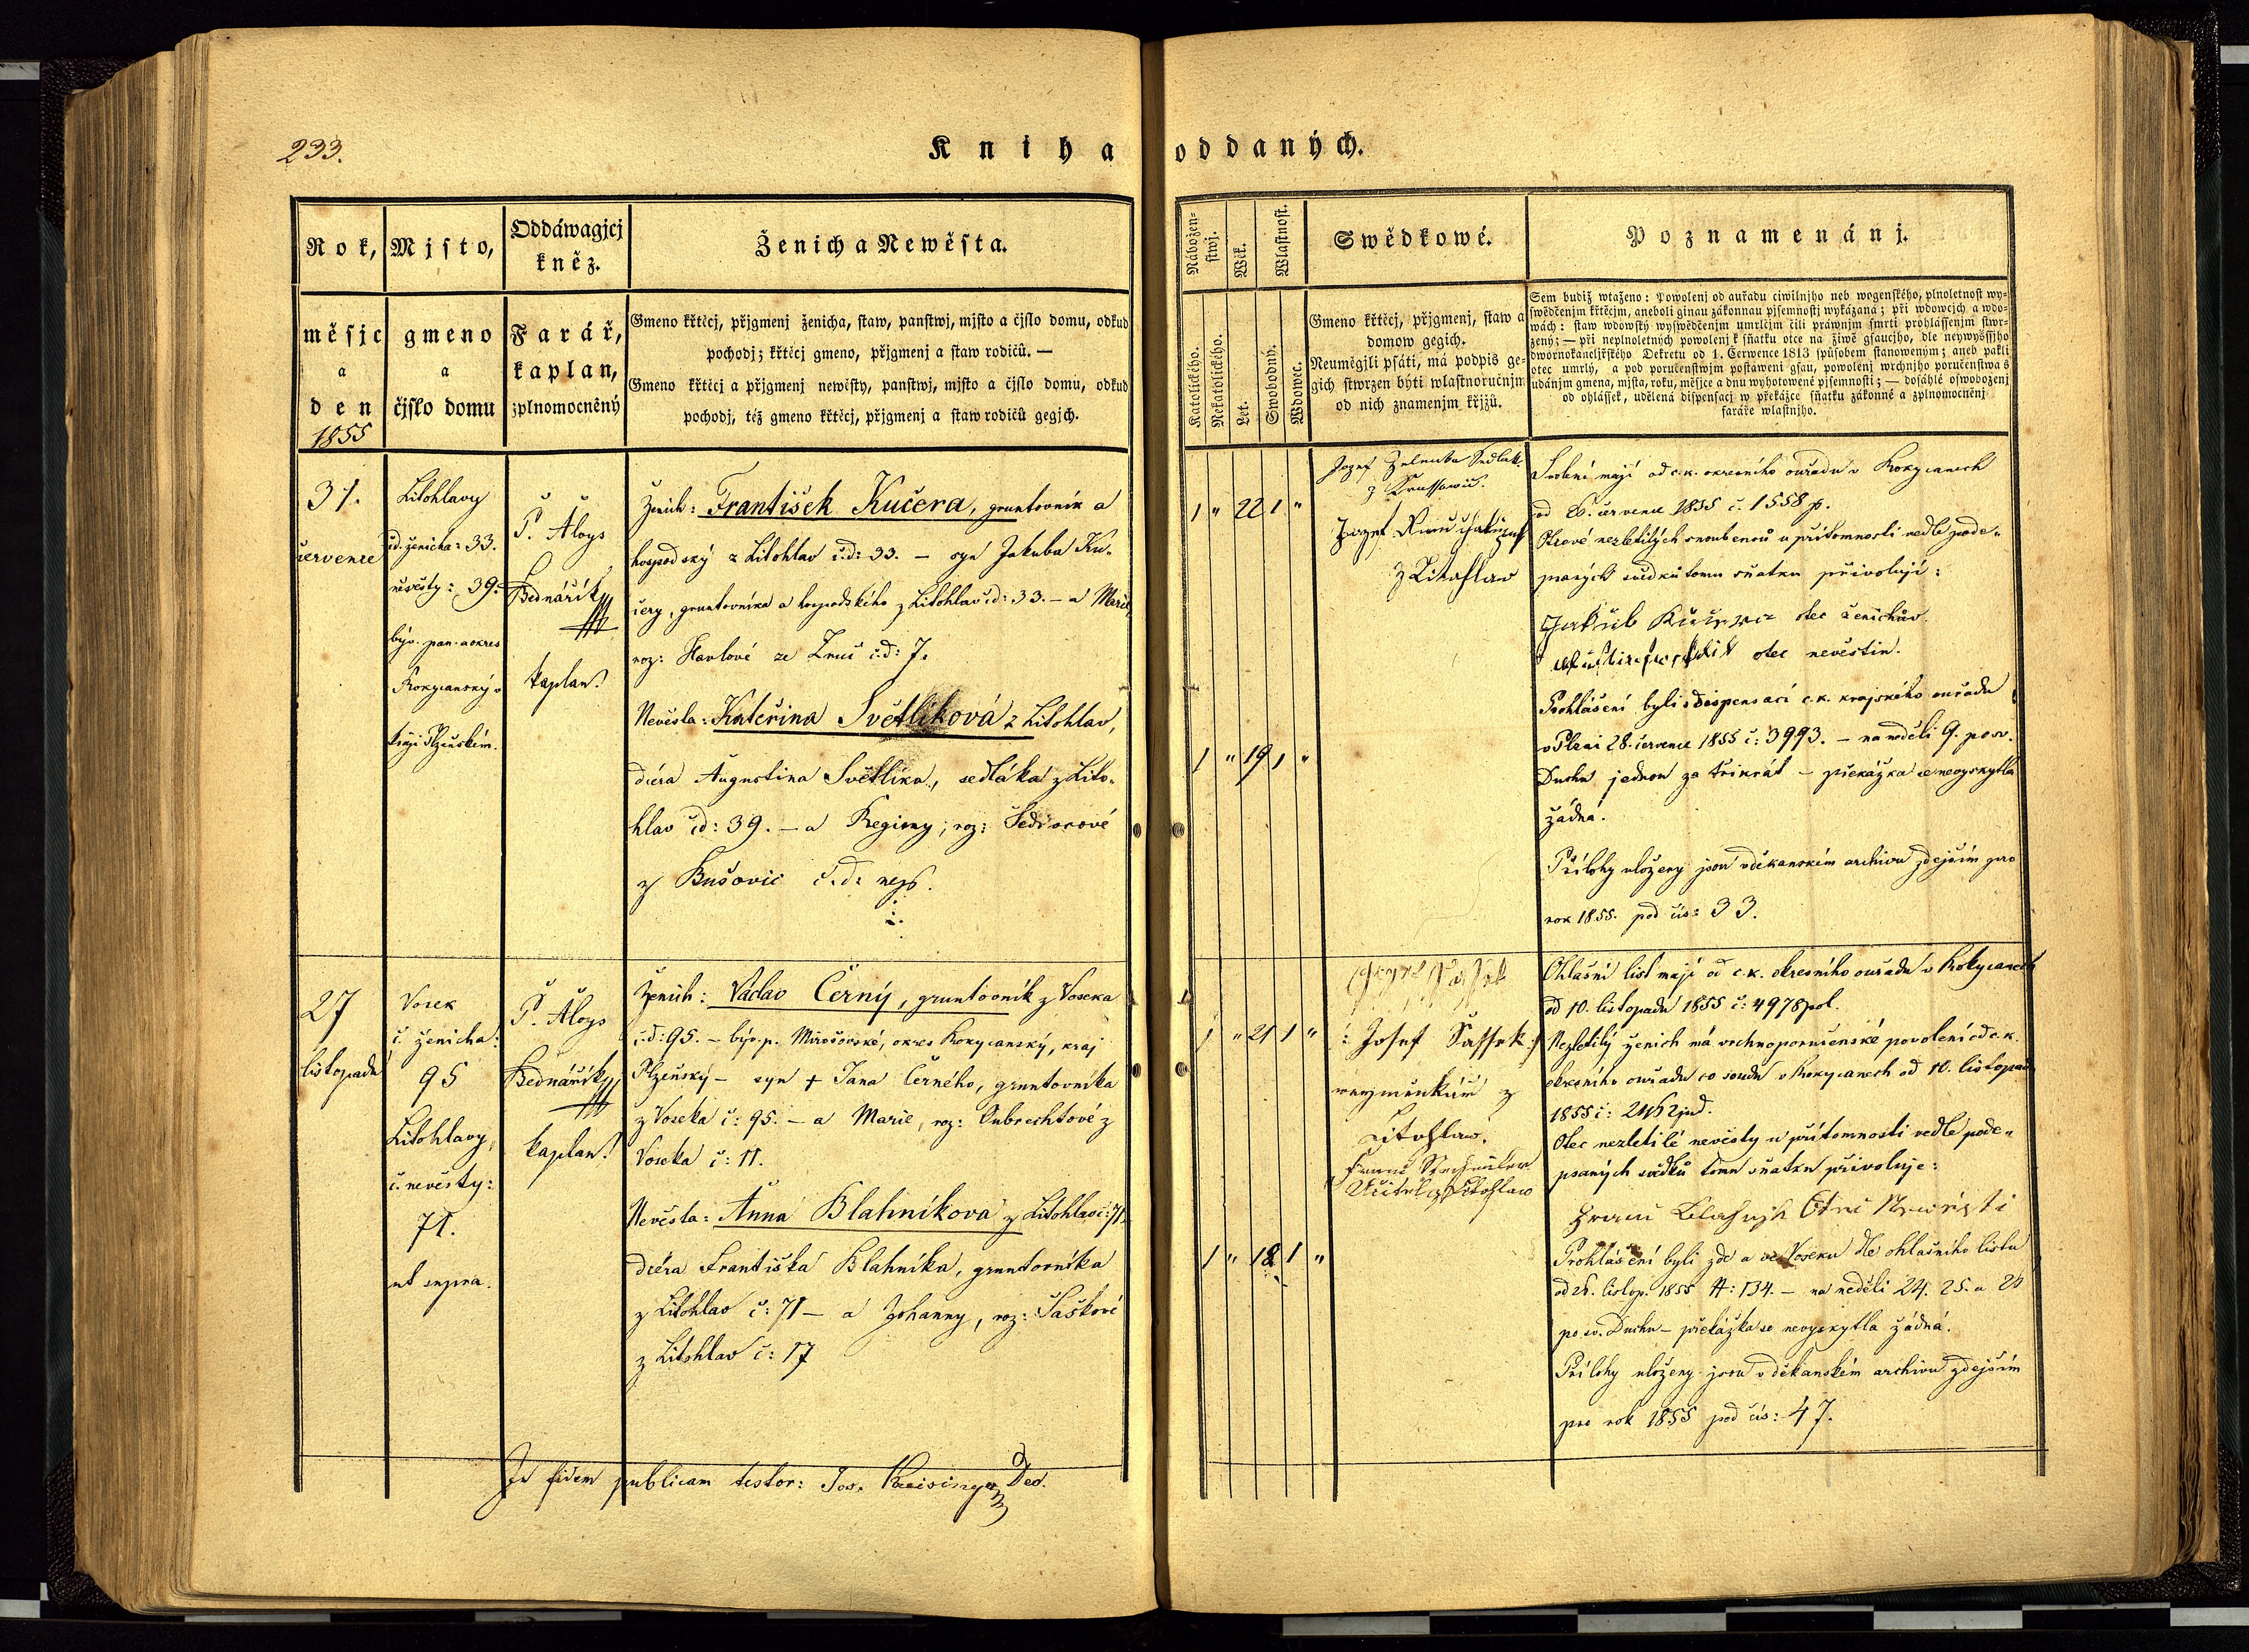 233.
Kniha oddaných.
Rok,
měsjc
a
den
1855
Mjsto,
gmeno
a
čjslo domu
Oddáwagjcj
kněz.
Farář,
kaplan,
zplnomocněný
Ženich a Newěsta.
Gmeno křtěcj, přjgmenj ženicha, staw, panstwj, mjsto a čjslo domu, odkud
pochodj; křtěcj gmeno, přjgmenj a staw rodičů. —
Gmeno křtěcj a přjgmenj newěsty, panstwj, mjsto a čjslo domu, odkud
pochodj, též gmeno křtěcj, přjgmenj a staw rodičů gegjch.
Nábožen-
stwj.
Katolického.
Nekatolického.
Wěk.
Let.
Wlastnost.
Swobodný.
Wdowec.
Swědkowé.
Gmeno křtěcj, přjgmenj, staw a
domow gegich.
Neuměgjli psáti, má podpis ge-
gich stwrzen býti wlastnoručnjm
od nich znamenjm křjžů.
Poznamenánj.
Sem budiž wtaženo: Powolenj od auřadu ciwilnjho neb wogenského, plnoletnost wy-
swědčenjm křtěcjm, aneboli ginau zákonnau pjsemnostj wykázaná; při wdowcjch a wdo-
wách: staw wdowský wyswědčenjm umrlčjm čili práwnjm smrti prohlássenjm stwr-
zený; — při neplnoletných powolenj k sňatku otce na žiwě gsaucjho, dle neywyššjho
dwornokancljřského Dekretu od 1. Čerwence 1813 spůsobem stanoweným; aneb pakli
otec umrlý, a pod poručenstwjm postaweni gsau, powolenj wrchnjho poručenstwa s
udánjm gmena, mjsta, roku, měsjce a dnu wyhotowené pjsemnosti; — dosáhlé oswobozenj
od ohlássek, udělená dispensacj w překážce sňatku zákonné a zplnomocněnj
faráře wlastnjho.
31.
července
Litohlavy
čd. ženicha: 33.
nevěsty: 39.
býv. pan. a okres
Rokycanský v
kraji Plzeňském.
P. Aloys
Bednářík
kaplan.
Ženich: František Kučera, gruntovník a
hospodský z Litohlav č.d: 33. — syn Jakuba Ku-
čery, gruntovníka a hospodského z Litohlav čd: 33. — a Marie,
roz: Havlové ze Zruč č.d: 7.
Nevěsta: Kateřina Světlíková z Litohlav,
dcera Augustina Světlíka, sedláka z Lito-
hlav čd: 39. — a Reginy, roz:
z Bušovic č.d:
1 " 22 1 "
1 " 19 1 "
Jozef Zelenka Sedlak
z
Jozef
z Litohlaw
Svolení mají od c.k. okresního ouřadu v Rokycanech
od 26. července 1855 č. 1558 p.
Otcové nezletilých snoubenců u přítomnosti vedle pode-
psaných svědků tomu sňatku přivolují:
Jakub Kučera otec ženichův.
otec nevěstin.
Prohlášení byli s dispensací c.k. krajského ouřadu
v Plzni 28. července 1855 č: 3993. — na neděli 9. po sv.
Duchu jednou za třikrát — překážka se nevyskytla
žádná.
Přílohy uloženy jsou v děkanském archivu zdejším pro
rok 1855. pod čís: 33.
27
listopadu
Vosek
č. ženicha:
95
Litohlavy,
č. nevěsty:
71.
ut supra.
P. Aloys
Bednářík
kaplan.
Ženich: Václav Černý, gruntovník z Voseka
č.d: 95. — býv. p. Mirošovské, okres Rokycanský, kraj
Plzeňský — syn + Jana Černého, gruntovníka
z Voseka č: 95. — a Marie, roz: Oubrechtové z
Voseka č: 11.
Nevěsta: Anna Blahníkova z Litohlav č: 71.
dcera Františka Blahníka, gruntovníka
z Litohlav č: 71 — a Johanny, roz: Šaškové
z Litohlav č: 17
1 " 21 1 "
1 " 18 1 "
: Josef Sassek :
z
Litohlaw.
Učitel z Litohlaw
Ohlašní list mají od c.k. okresního ouřadu v Rokycanech
od 10. listopadu 1855 č: 4978 pol.
Nezletilý ženich má vrchnoporučenské povolení od c.k.
okresního ouřadu co soudu v Rokycanech od 10. listopadu
1855 č:
Otec nezletilé nevěsty u přítomnosti vedle pode-
psaných svědků tomu sňatku přivoluje:
Prohlášení byli zde a ve Voseku dle ohlašního listu
od 26. listop. 1855 #: 134. — na neděli 24. 25. a 26
po sv. Duchu — překážka se nevyskytla žádná.
Přílohy uloženy jsou v děkanském archivu zdejším
pro rok 1855 pod čís: 47.
In fidem publicam testor: Jos. Preisinger Dec.